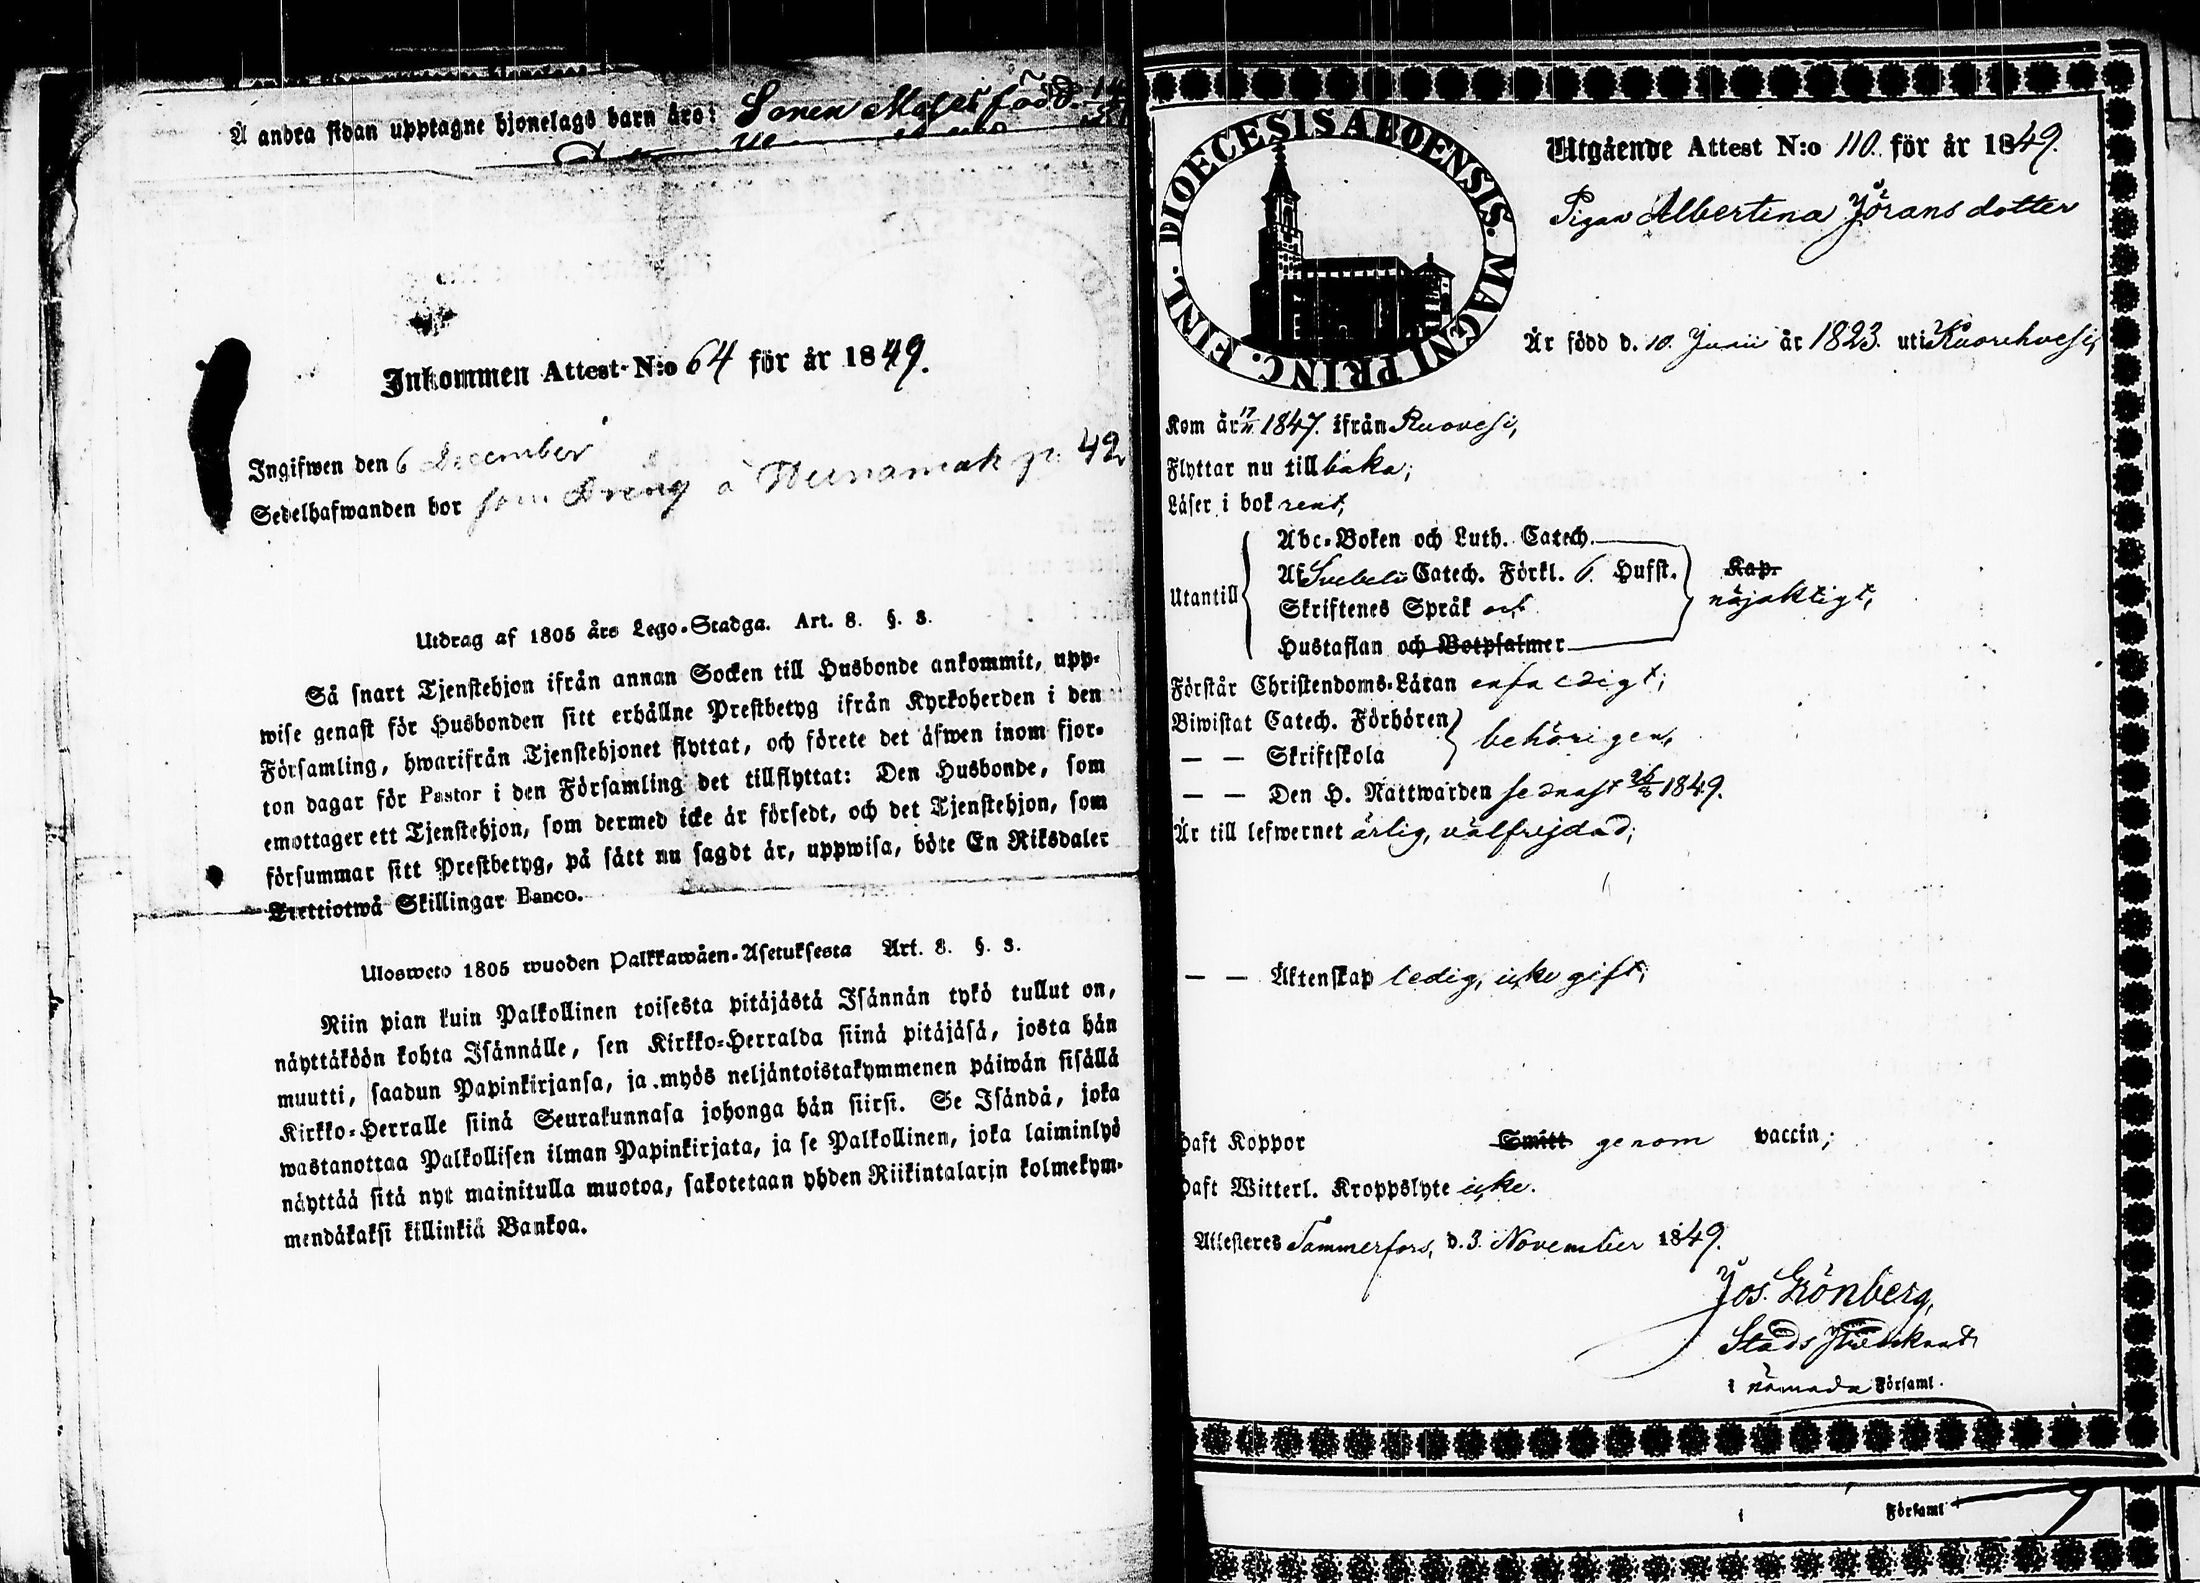 Å andra sidan upptagne hjonelags barn äro: Sonen Moses född
Inkommen Attest N:o 64 för år 1849.
Ingifwen den 6 December
Sedelhafwanden bor som Dreng å 42
Utdrag af 1805 års Lego-Stadga. Art. 8. §. 3.
Så snart Tjenstehjon ifrån annan Socken till Husbonde ankommit, upp-
wise genast för Husbonden sitt erhållne Prestbetyg ifrån Kyrkoherden i den
Församling, hwarifrån Tjenstehjonet flyttat, och förete det äfwen inom fjor-
ton dagar för Pastor i den Församling det tillflyttat: Den Husbonde, som
emottager ett Tjenstehjon, som dermed icke är försedt, och det Tjenstehjon, som
försummar sitt Prestbetyg, på sätt nu sagdt är, uppwisa, böte En Riksdaler
Trettiotwå Skillingar Banco.
Ulosweto 1805 wuoden Palkkawäen-Asetuksesta Art. 8. §. 3.
Niin pian kuin Palkollinen toisesta pitäjästä Isännän tykö tullut on,
näyttäköön kohta Isännälle, sen Kirkko-Herralda siinä pitäjäsä, josta hän
muutti, saadun Papinkirjansa, ja myös neljäntoistakymmenen päiwän sisällä
Kirkko-Herralle siinä Seurakunnasa johonga hän siirsi. Se Isändä, joka
wastanottaa Palkollisen ilman Papinkirjata, ja se Palkollinen, joka laiminlyö
näyttää sitä nyt mainitulla muotoa, sakotetaan yhden Riikintalarin kolmekym-
mendäkaksi killinkiä Bankoa.
DIOECESIS ABOENSIS. MAGNI PRINC. FINL.
Utgående Attest N:o 110. för år 1849.
Pigan Albertina Jörans dotter
Är född d. 10. Junii år 1823. uti Kuorehvesi,
Kom år 17/11 1847. ifrån Ruovesi,
Flyttar nu till baka;
Läser i bok rent,
Utantill
Abc-Boken och Luth. Catech.
Af Svebelii Catech. Förkl. 6. Hufst.
Skriftenes Språk och
Hustaflan och Botpsalmer
Kap.
nöjaktigt,
Förstår Christendoms-Läran enfaldigt;
Biwistat Catech. Förhören
— — Skriftskola
behörigen,
— — Den H. Nattwarden sednast 26/8 1849.
Är till lefwernet ärlig, välfrejdad;
— — Äktenskap ledig, icke gift;
Haft Koppor Smitt genom vaccin;
Haft Witterl. Kroppslyte icke.
Attesteres Tammerfors, d. 3. November 1849.
Jos. Grönberg,
Stads Predikant
i nämnda Församl.
i Församl